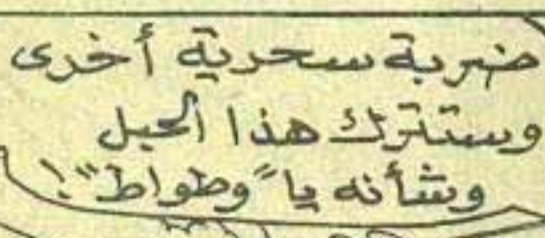 ضربة سحرية أخرى
وستترك هذا الحبل
وشأنه يا "وطواط"!